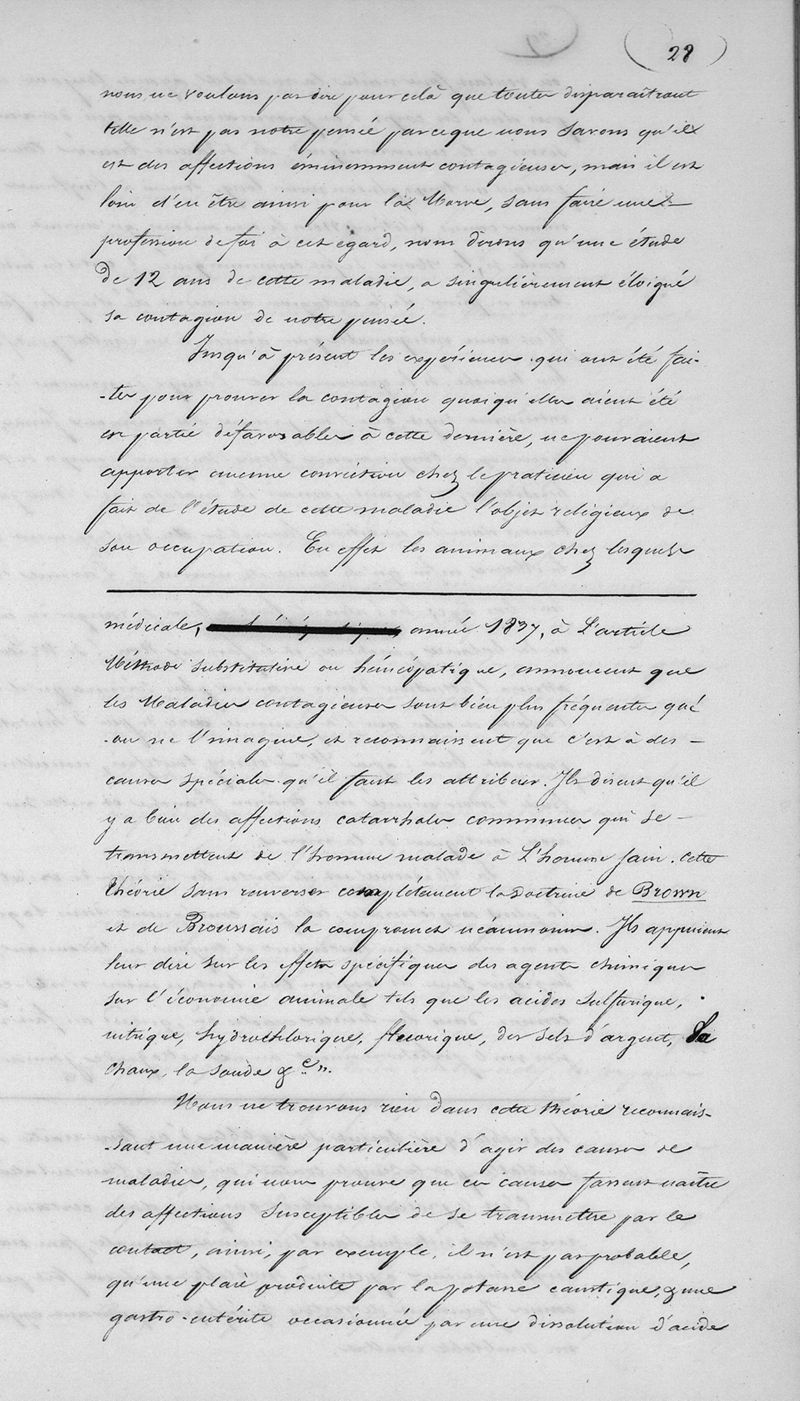 28
nous ne voulons pas dire pour celà que toutes disparaîtront
telle n'est pas notre pensée parceque nous savons qu'il
est des affections éminemment contagieuses, mais il est
loin d'en être ainsi pour la Morve, sans faire une
profession de foi à cet egard, nous dirons qu'une étude
de 12 ans de cette maladie, a singulièrement éloigné
sa contagion de notre pensée.
Jusqu'à présent les expériences qui ont été fai-
-tes pour prouver la contagion quoiqu'elles aient été
en partie défavorables à cette dernière, ne pouvaient
apporter aucune conviction chez le praticien qui a
fait de l'étude de cette maladie l'objet religieux de
son occupation. En effet les animaux chez lesquels
médicale, année 1837, à L'article
Méthode substitutive ou homéopatique, annoncent que
les Maladies contagieuses sont bien plus fréquentes qué
on ne l'imagine, et reconnaissent que c'est à des -
causes spéciales qu'il faut les attribuer. Ils disent qu'il
y a bien des affections catarrhales communes qui se -
transmettent de l'homme malade à L'homme sain. cette
théorie sans renverser complétement la doctrine de Brown
et de Broussais la compromet néanmoins. Ils appuient
leur dire sur les effets spécifiques des agents chimiques
sur l'économie animale tels que les acides sulfurique,
nitrique, hydrochlorique, fluorique, des sels d'argent, la
chaux, la soude &c".
Nous ne trouvons rien dans cette théorie reconnais-
-sant une manière particulière d'agir des causes de
maladies, qui nous prouve que ces causes fassent naître
des affections susceptibles de se transmettre par le
contact, ainsi, par exemple, il n'est pas probable,
qu'une plaie produite par la potasse caustique, & une
gastro-entérite occasionnée par une dissolution d'acide